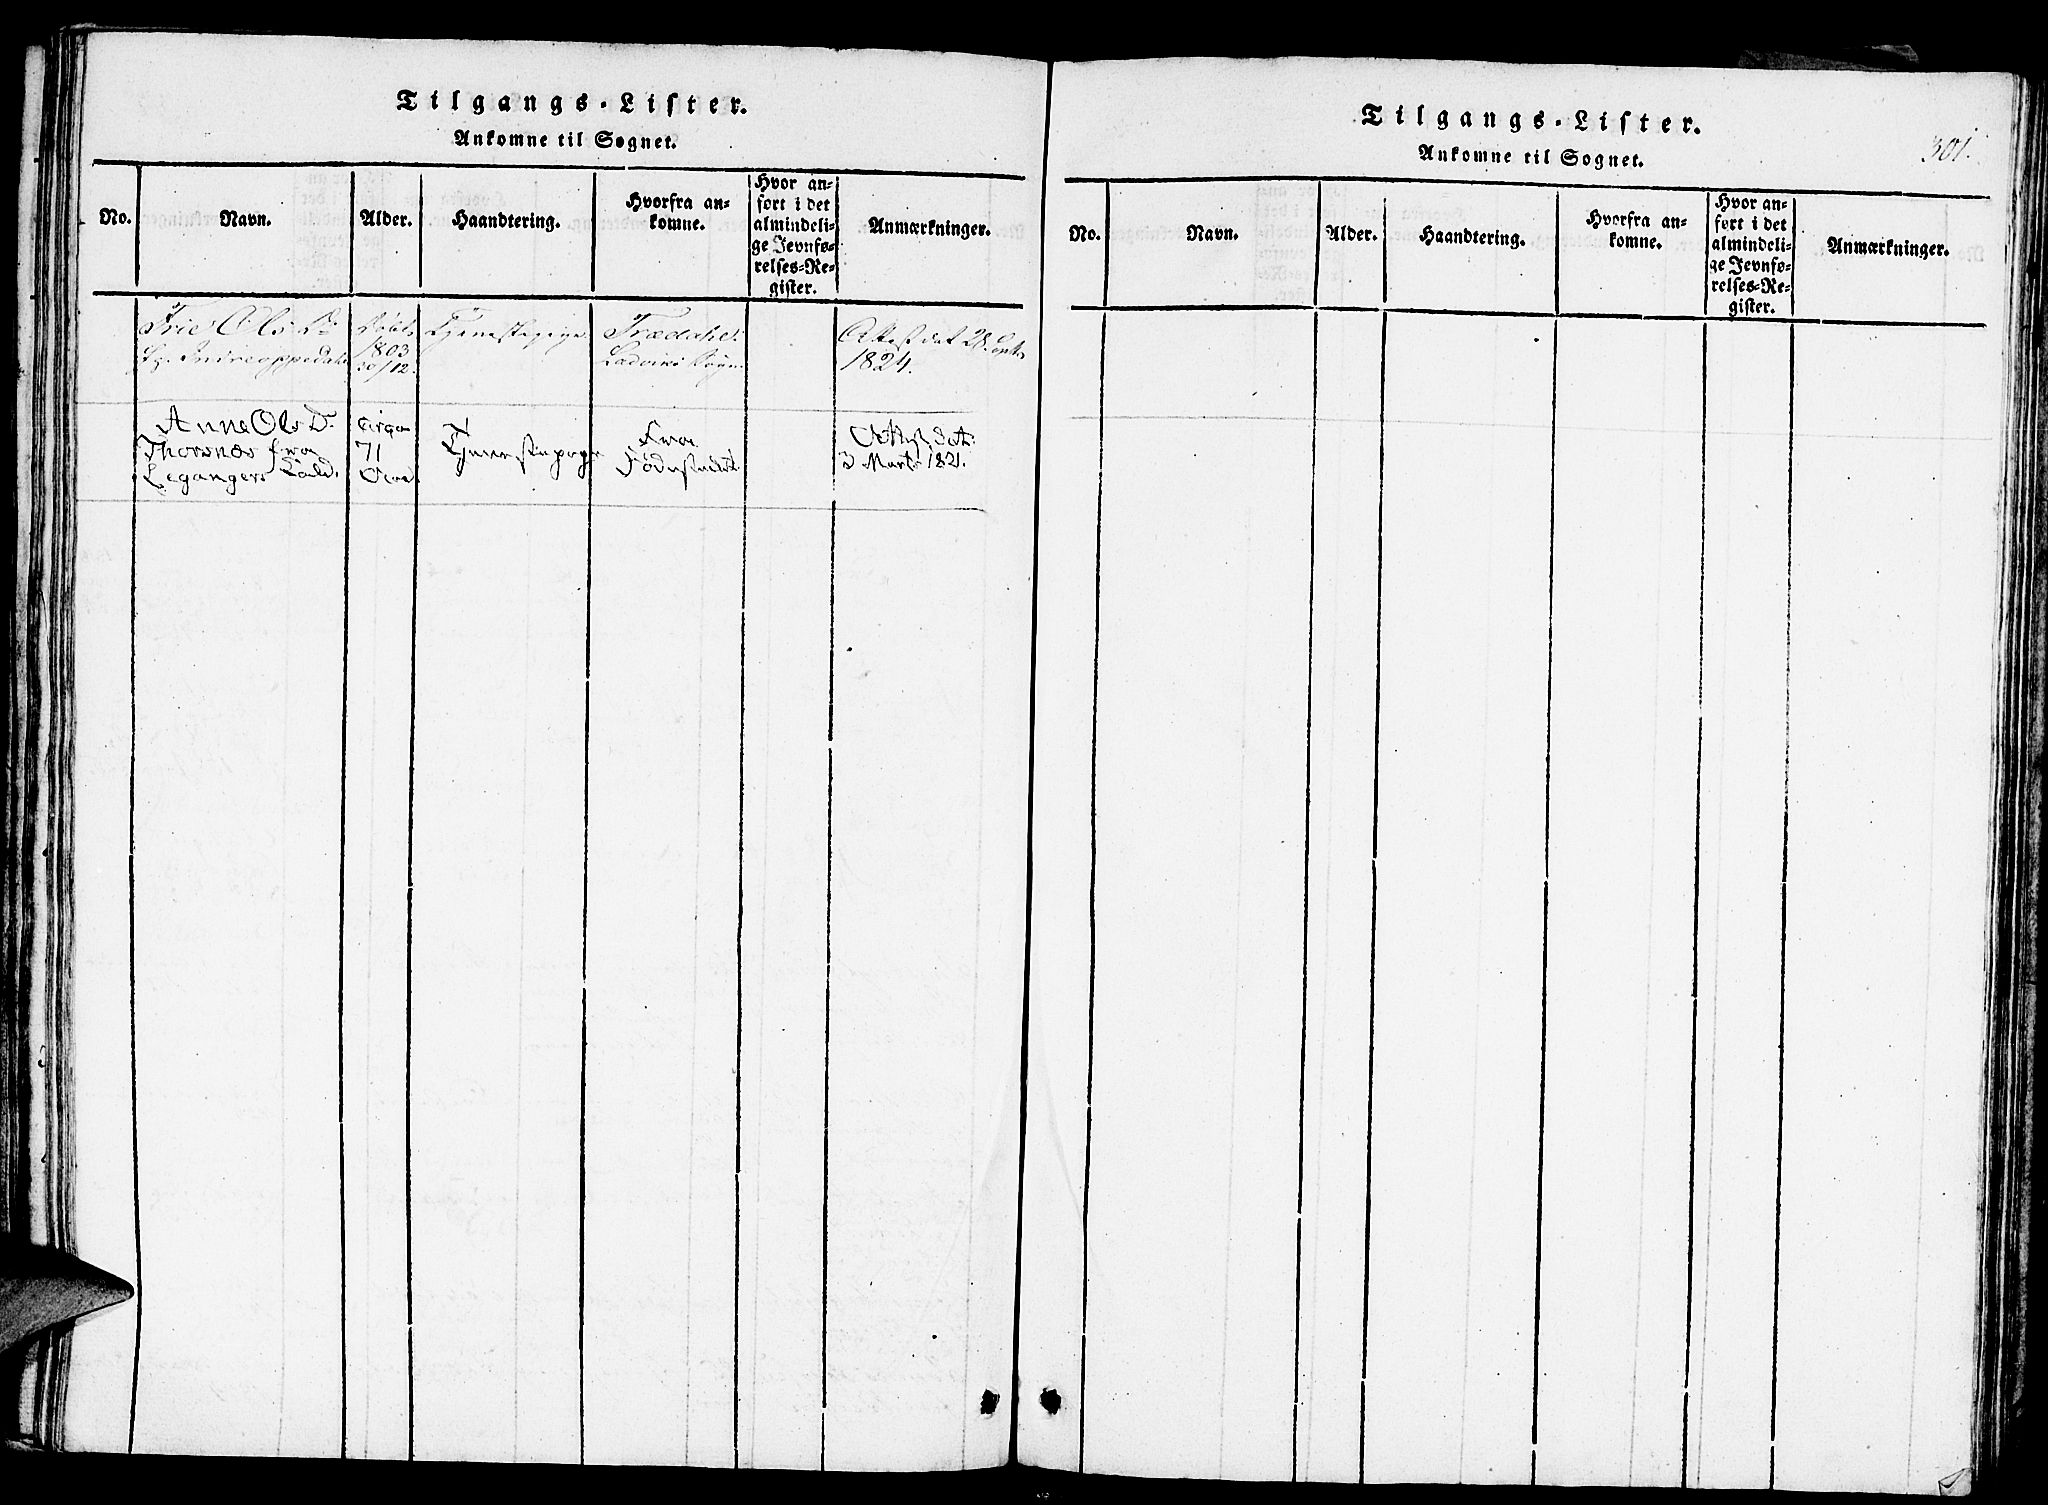 Tilgangs-Lister.
Ankomne til Sognet.
No.
Navn.
Alder.
Haandtering.
Hvorfra an=
komne.
Hvor an=
ført i det
almindeli=
ge Jevnfø=
relses=Re=
gister.
Anmærkninger.
Ols D:
Indreoppedahl
Døbt
1803
30/12.
Tjenestepige
Trædahl
Ladviks Sogn
Attest dat 28 Sept
1824.
Anne Ols D:
Thorsnæs fra
Leganger Kald.
circa
71
Tjenestepige
Fra
Fødestedet
Attest Dat:
3 Marts 1821.
Tilgangs-Lister.
Ankomne til Sognet.
301.
No.
Navn.
Alder.
Haandtering.
Hvorfra an=
komne.
Hvor an=
ført i det
almindeli=
ge Jevnfø=
relses=Re=
gister.
Anmærkninger.